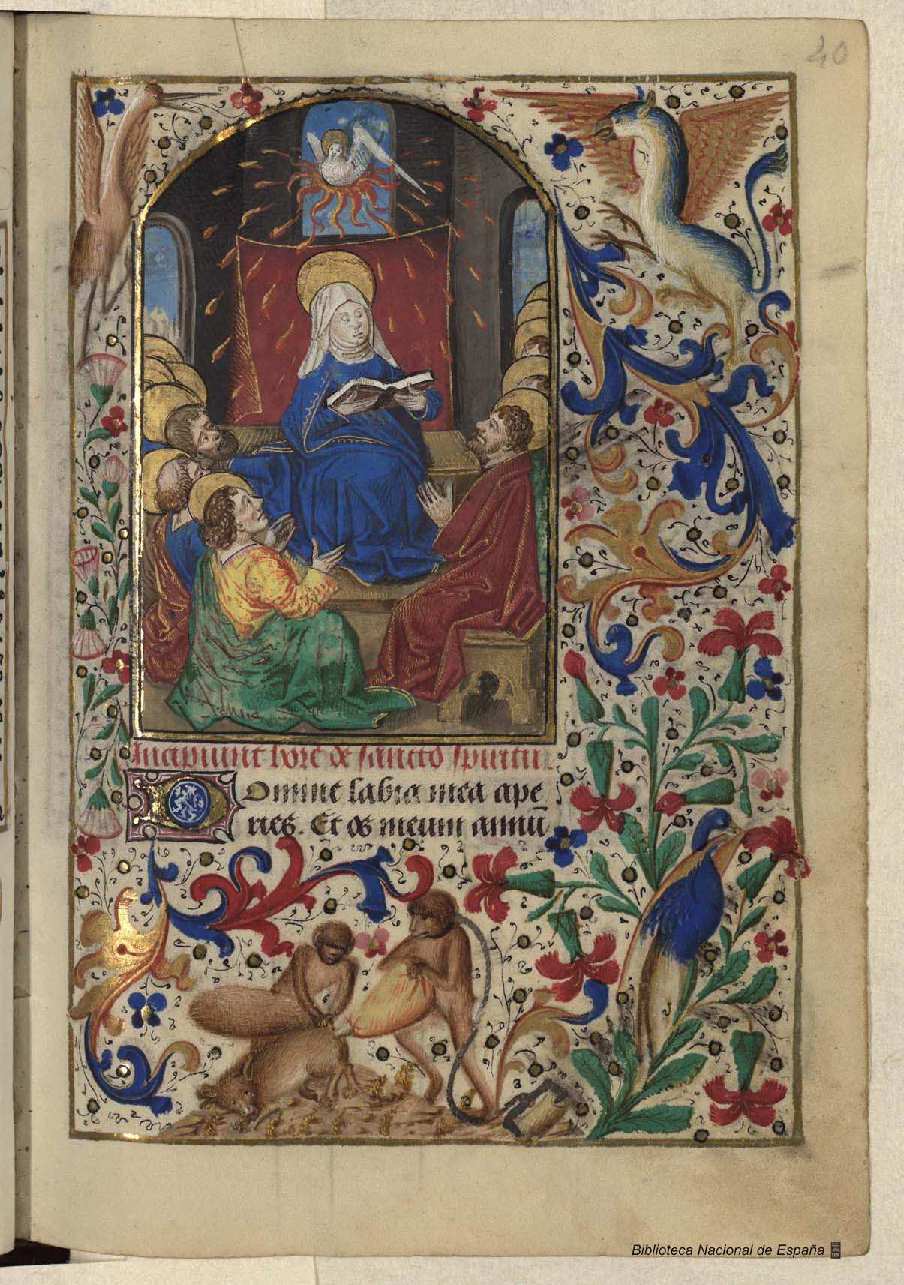 40
Incipiunt hore de sancto spiritu
Domine labia mea ape
ries. Et os meum annū
Biblioteca Nacional de España